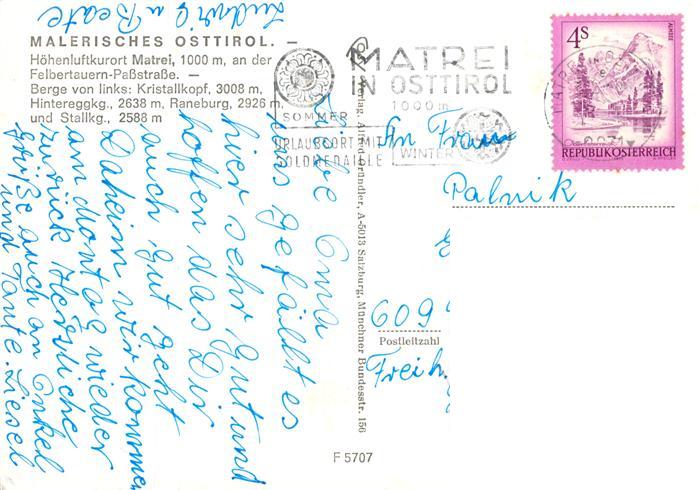 MALERISCHES OSTTIROL. —
Höhenluftkurort Matrei, 1000 m, an der
Felbertauern-Paßstraße. —
Berge von links: Kristallkopf, 3008 m,
Hintereggkg., 2638 m, Raneburg, 2926 m,
und Stallkg., 2588 m
MATREI
IN OSTTIROL
1000 m
SOMMER
URLAUBSORT MIT
GOLDMEDAILLE
WINTER
4S
ALMSEE
REPUBLIK ÖSTERREICH
Liebe Oma
uns gefällt es
hier sehr gut und
hoffen das Dir
auch gut geht
Daheim wir kommen
am Montag wieder
zurück Herzliche
Grüße auch an Onkel
und Tante Liesel
Ludwig u Beate
Verlag Alfred Gründler, A-5013 Salzburg, Münchner Bundesstr. 156
An Frau
Palnik
609
Postleitzahl
Freih
F 5707